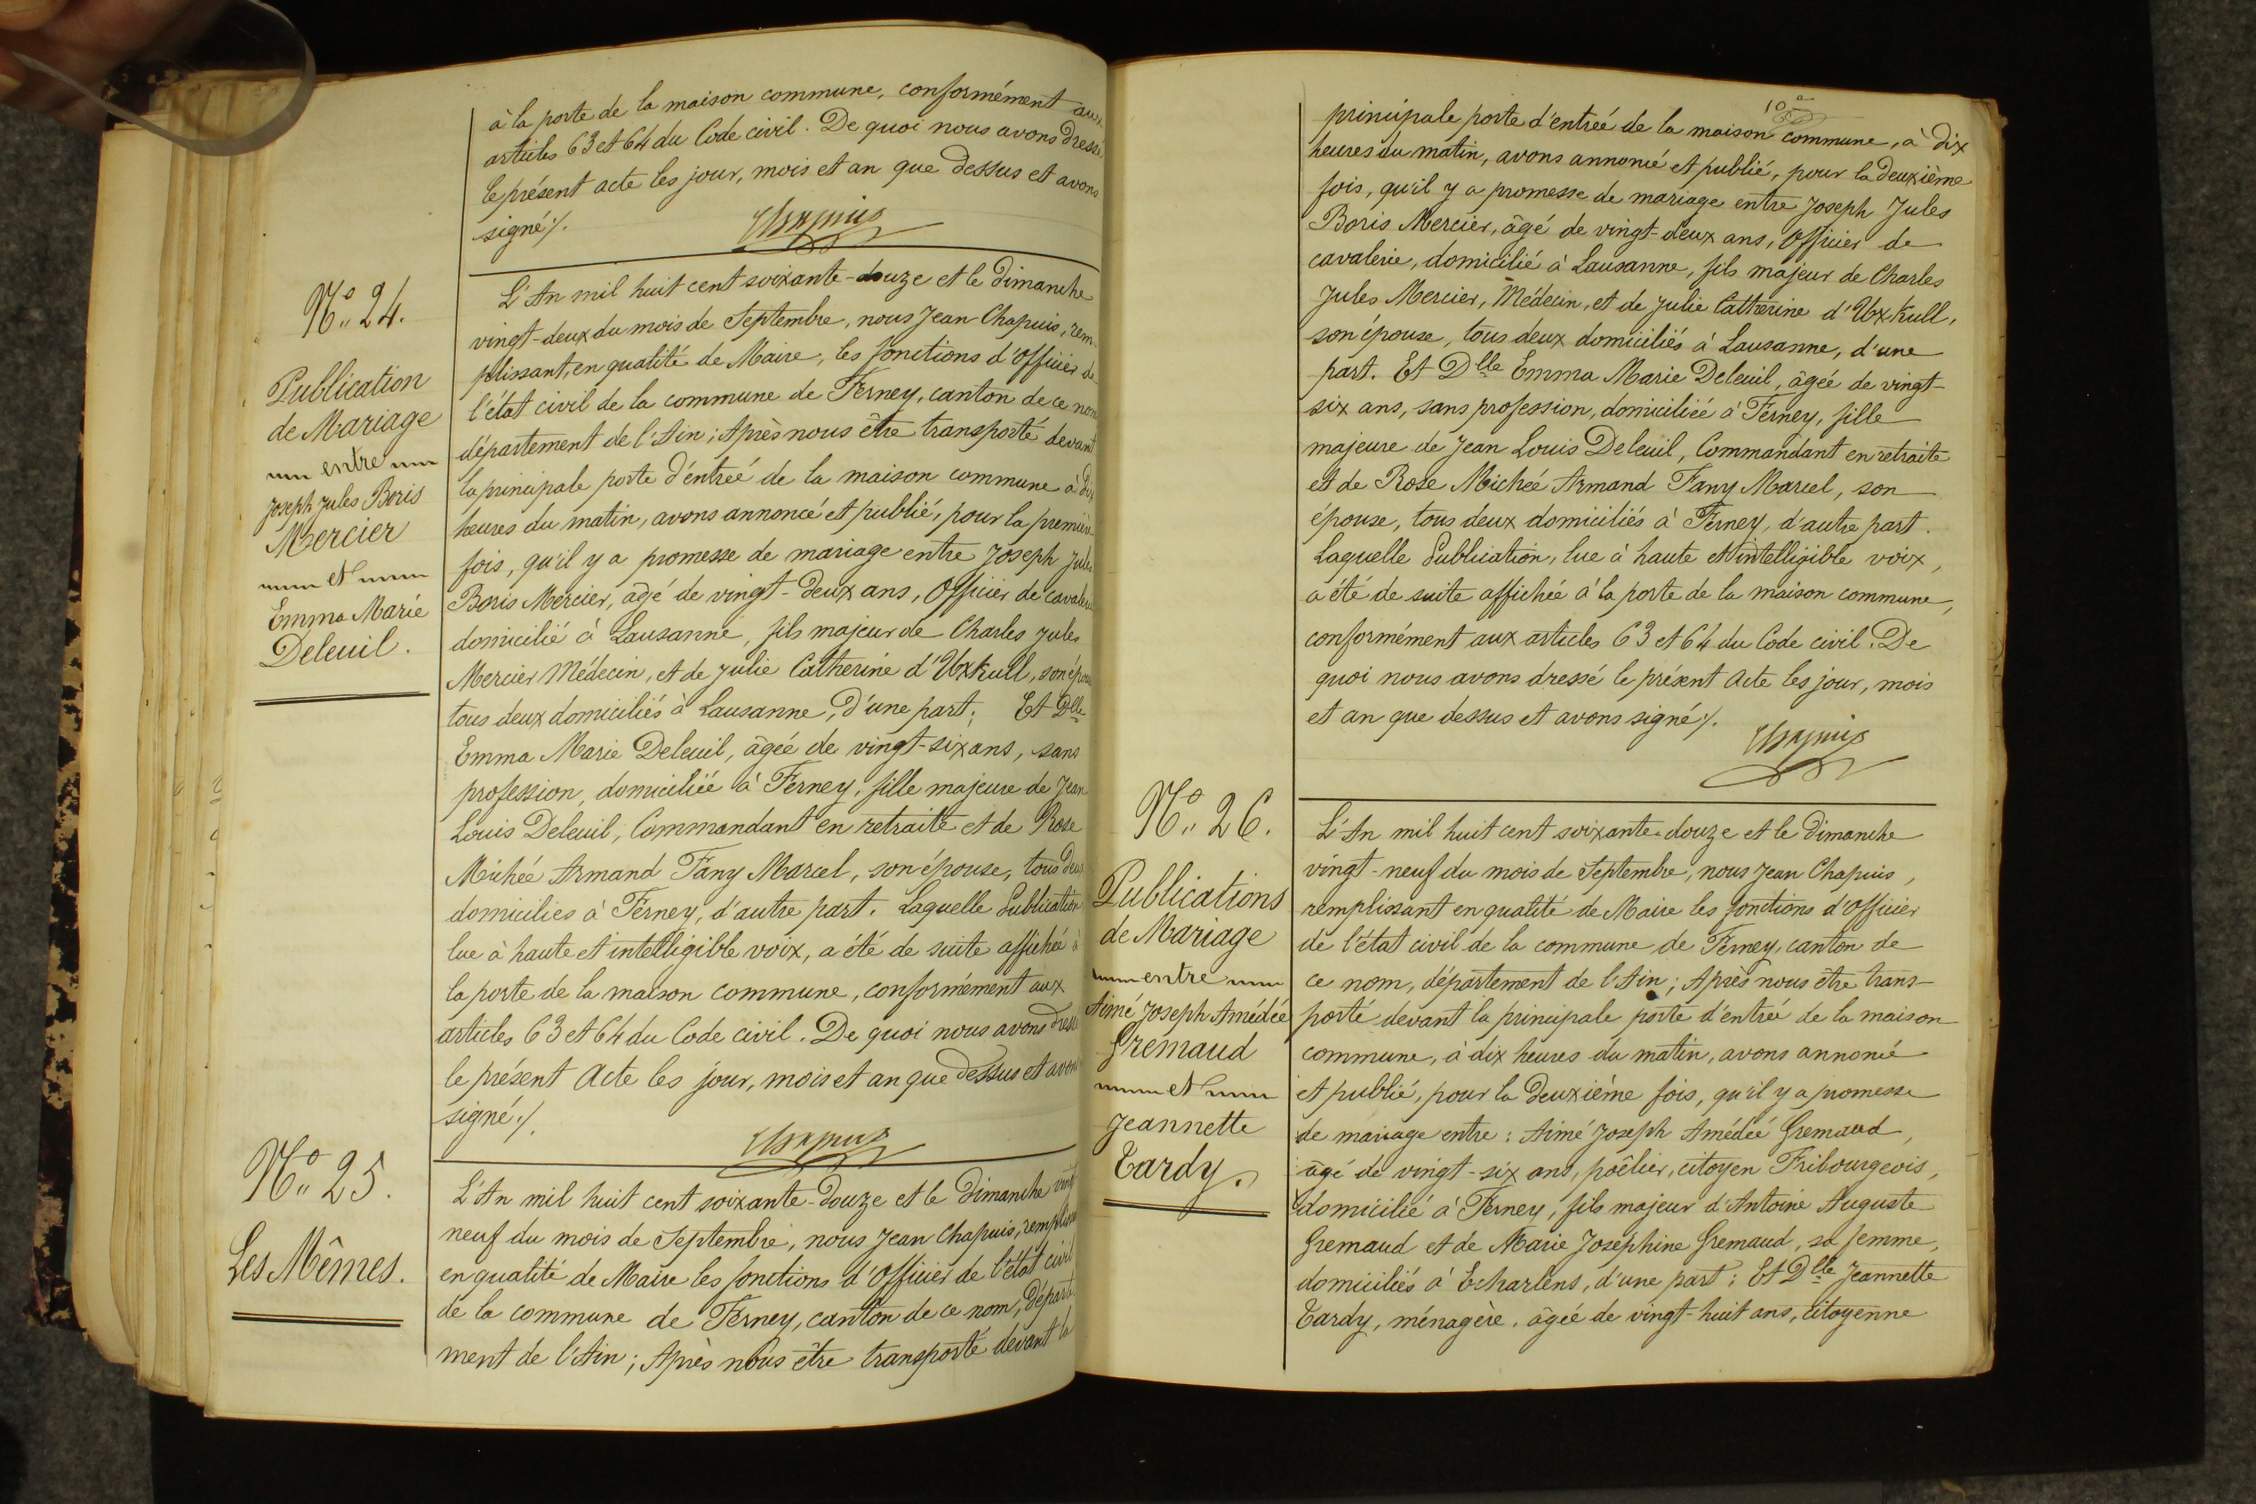 à la porte de la maison commune, conformément aux
articles 63 et 64 du Code civil. De quoi nous avons dressé
le présent acte les jour, mois et an que dessus et avons
signé ./.
Chapuis
N°. 24.
Publication
de Mariage
entre
Joseph Jules Boris
Mercier
et
Emma Marie
Deleuil.
L'An mil huit cent soixante-douze et le Dimanche
vingt-deux du mois de Septembre, nous Jean Chapuis, rem-
plissant, en qualité de Maire, les fonctions d'Officier de
l'état civil de la commune de Ferney, canton de ce nom
département de l'Ain; Après nous être transporté devant
la principale porte d'entrée de la maison commune à dix
heures du matin, avons annoncé et publié, pour la première
fois, qu'il y a promesse de mariage entre Joseph Jules
Boris Mercier, âgé de vingt-deux ans, Officier de cavalerie
domicilié à Lausanne, fils majeur de Charles Jules
Mercier Médecin, et de Julie Catherine d'Uxkull, son épouse
tous deux domiciliés à Lausanne, d'une part; Et Dlle
Emma Marie Deleuil, âgée de vingt-six ans, sans
profession, domiciliée à Ferney, fille majeure de Jean
Louis Deleuil, Commandant en retraite et de Rose
Michée Armand Fany Marcel, son épouse, tous deux
domiciliés à Ferney, d'autre part. Laquelle Publication
lue à haute et intelligible voix, a été de suite affichée à
la porte de la maison commune, conformément aux
articles 63 et 64 du Code civil. De quoi nous avons dressé
le présent Acte les jour, mois et an que dessus et avons
signé ./.
Chapuis
N°. 25.
Les Mêmes.
L'An mil huit cent soixante-douze et le Dimanche vingt
neuf du mois de Septembre, nous Jean Chapuis, remplissant
en qualité de Maire les fonctions d'Officier de l'état civil
de la commune de Ferney, canton de ce nom, départe-
ment de l'Ain; Après nous être transporté devant la
10
principale porte d'entrée de la maison commune, à dix
heures du matin, avons annoncé et publié, pour la deuxième
fois, qu'il y a promesse de mariage entre Joseph Jules
Boris Mercier, âgé de vingt-deux ans, Officier de
cavalerie, domicilié à Lausanne, fils majeur de Charles
Jules Mercier, Médecin, et de Julie Catherine d'Uxkull,
son épouse, tous deux domiciliés à Lausanne, d'une
part. Et Dlle Emma Marie Deleuil, âgée de vingt-
six ans, sans profession, domiciliée à Ferney, fille
majeure de Jean Louis Deleuil, Commandant en retraite
et de Rose Michée Armand Fany Marcel, son
épouse, tous deux domiciliés à Ferney, d'autre part.
Laquelle Publication, lue à haute et intelligible voix,
a été de suite affichée à la porte de la maison commune,
conformément aux articles 63 et 64 du Code civil. De
quoi nous avons dressé le présent Acte les jour, mois
et an que dessus et avons signé ./.
Chapuis
N°. 26.
Publications
de Mariage
entre
Aimé Joseph Amédée
Gremaud
et
Jeannette
Tardy.
L'An mil huit cent soixante-douze et le Dimanche
vingt-neuf du mois de Septembre, nous Jean Chapuis,
remplissant en qualité de Maire les fonctions d'Officier
de l'état civil de la commune de Ferney, canton de
ce nom, département de l'Ain; Après nous être trans-
porté devant la principale porte d'entrée de la maison
commune, à dix heures du matin, avons annoncé
et publié, pour la deuxième fois, qu'il y a promesse
de mariage entre: Aimé Joseph Amédée Gremaud,
âgé de vingt-six ans, poêlier, citoyen Fribourgeois,
domicilié à Ferney, fils majeur d'Antoine Auguste
Gremaud et de Marie Joséphine Gremaud, sa femme,
domiciliés à Echarlens, d'une part; Et Dlle Jeannette
Tardy, ménagère, âgée de vingt-huit ans, citoyenne